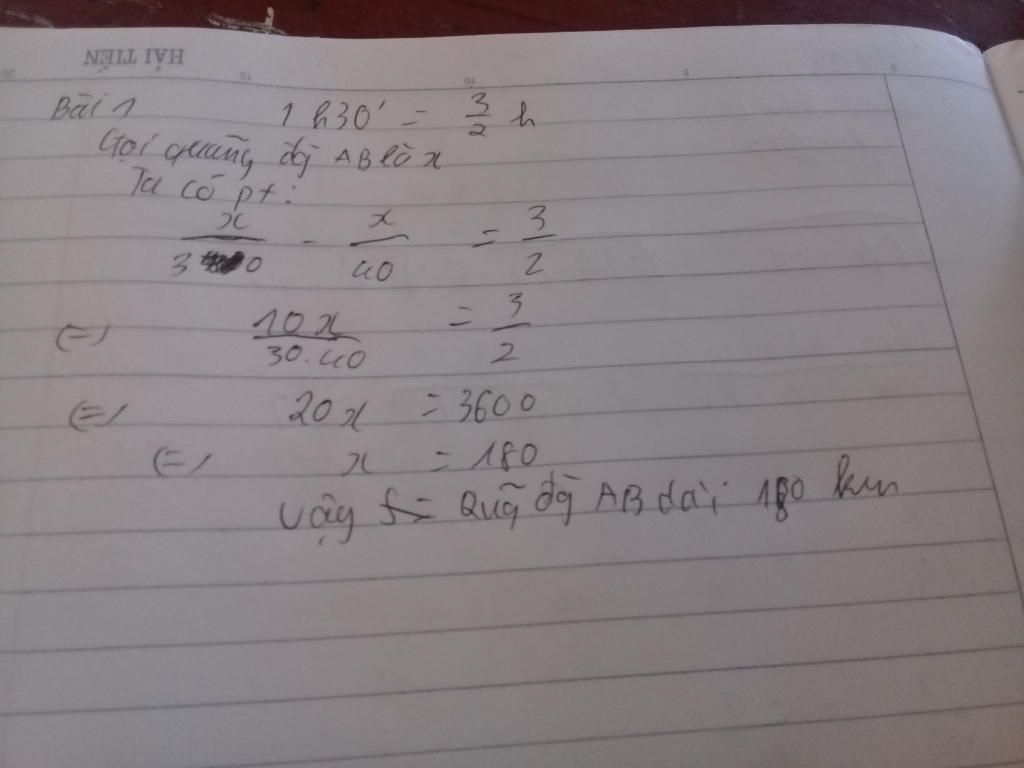 HẢI TIẾN
20 15 10 5 0
Bài 1 1h30' = 3/2 h
Gọi quãng đg AB là x
Ta có pt:
x/30 - x/40 = 3/2
(=) 10x/30.40 = 3/2
(=) 20x = 3600
(=) x = 180
Vậy Quãg đg AB dài 180 km